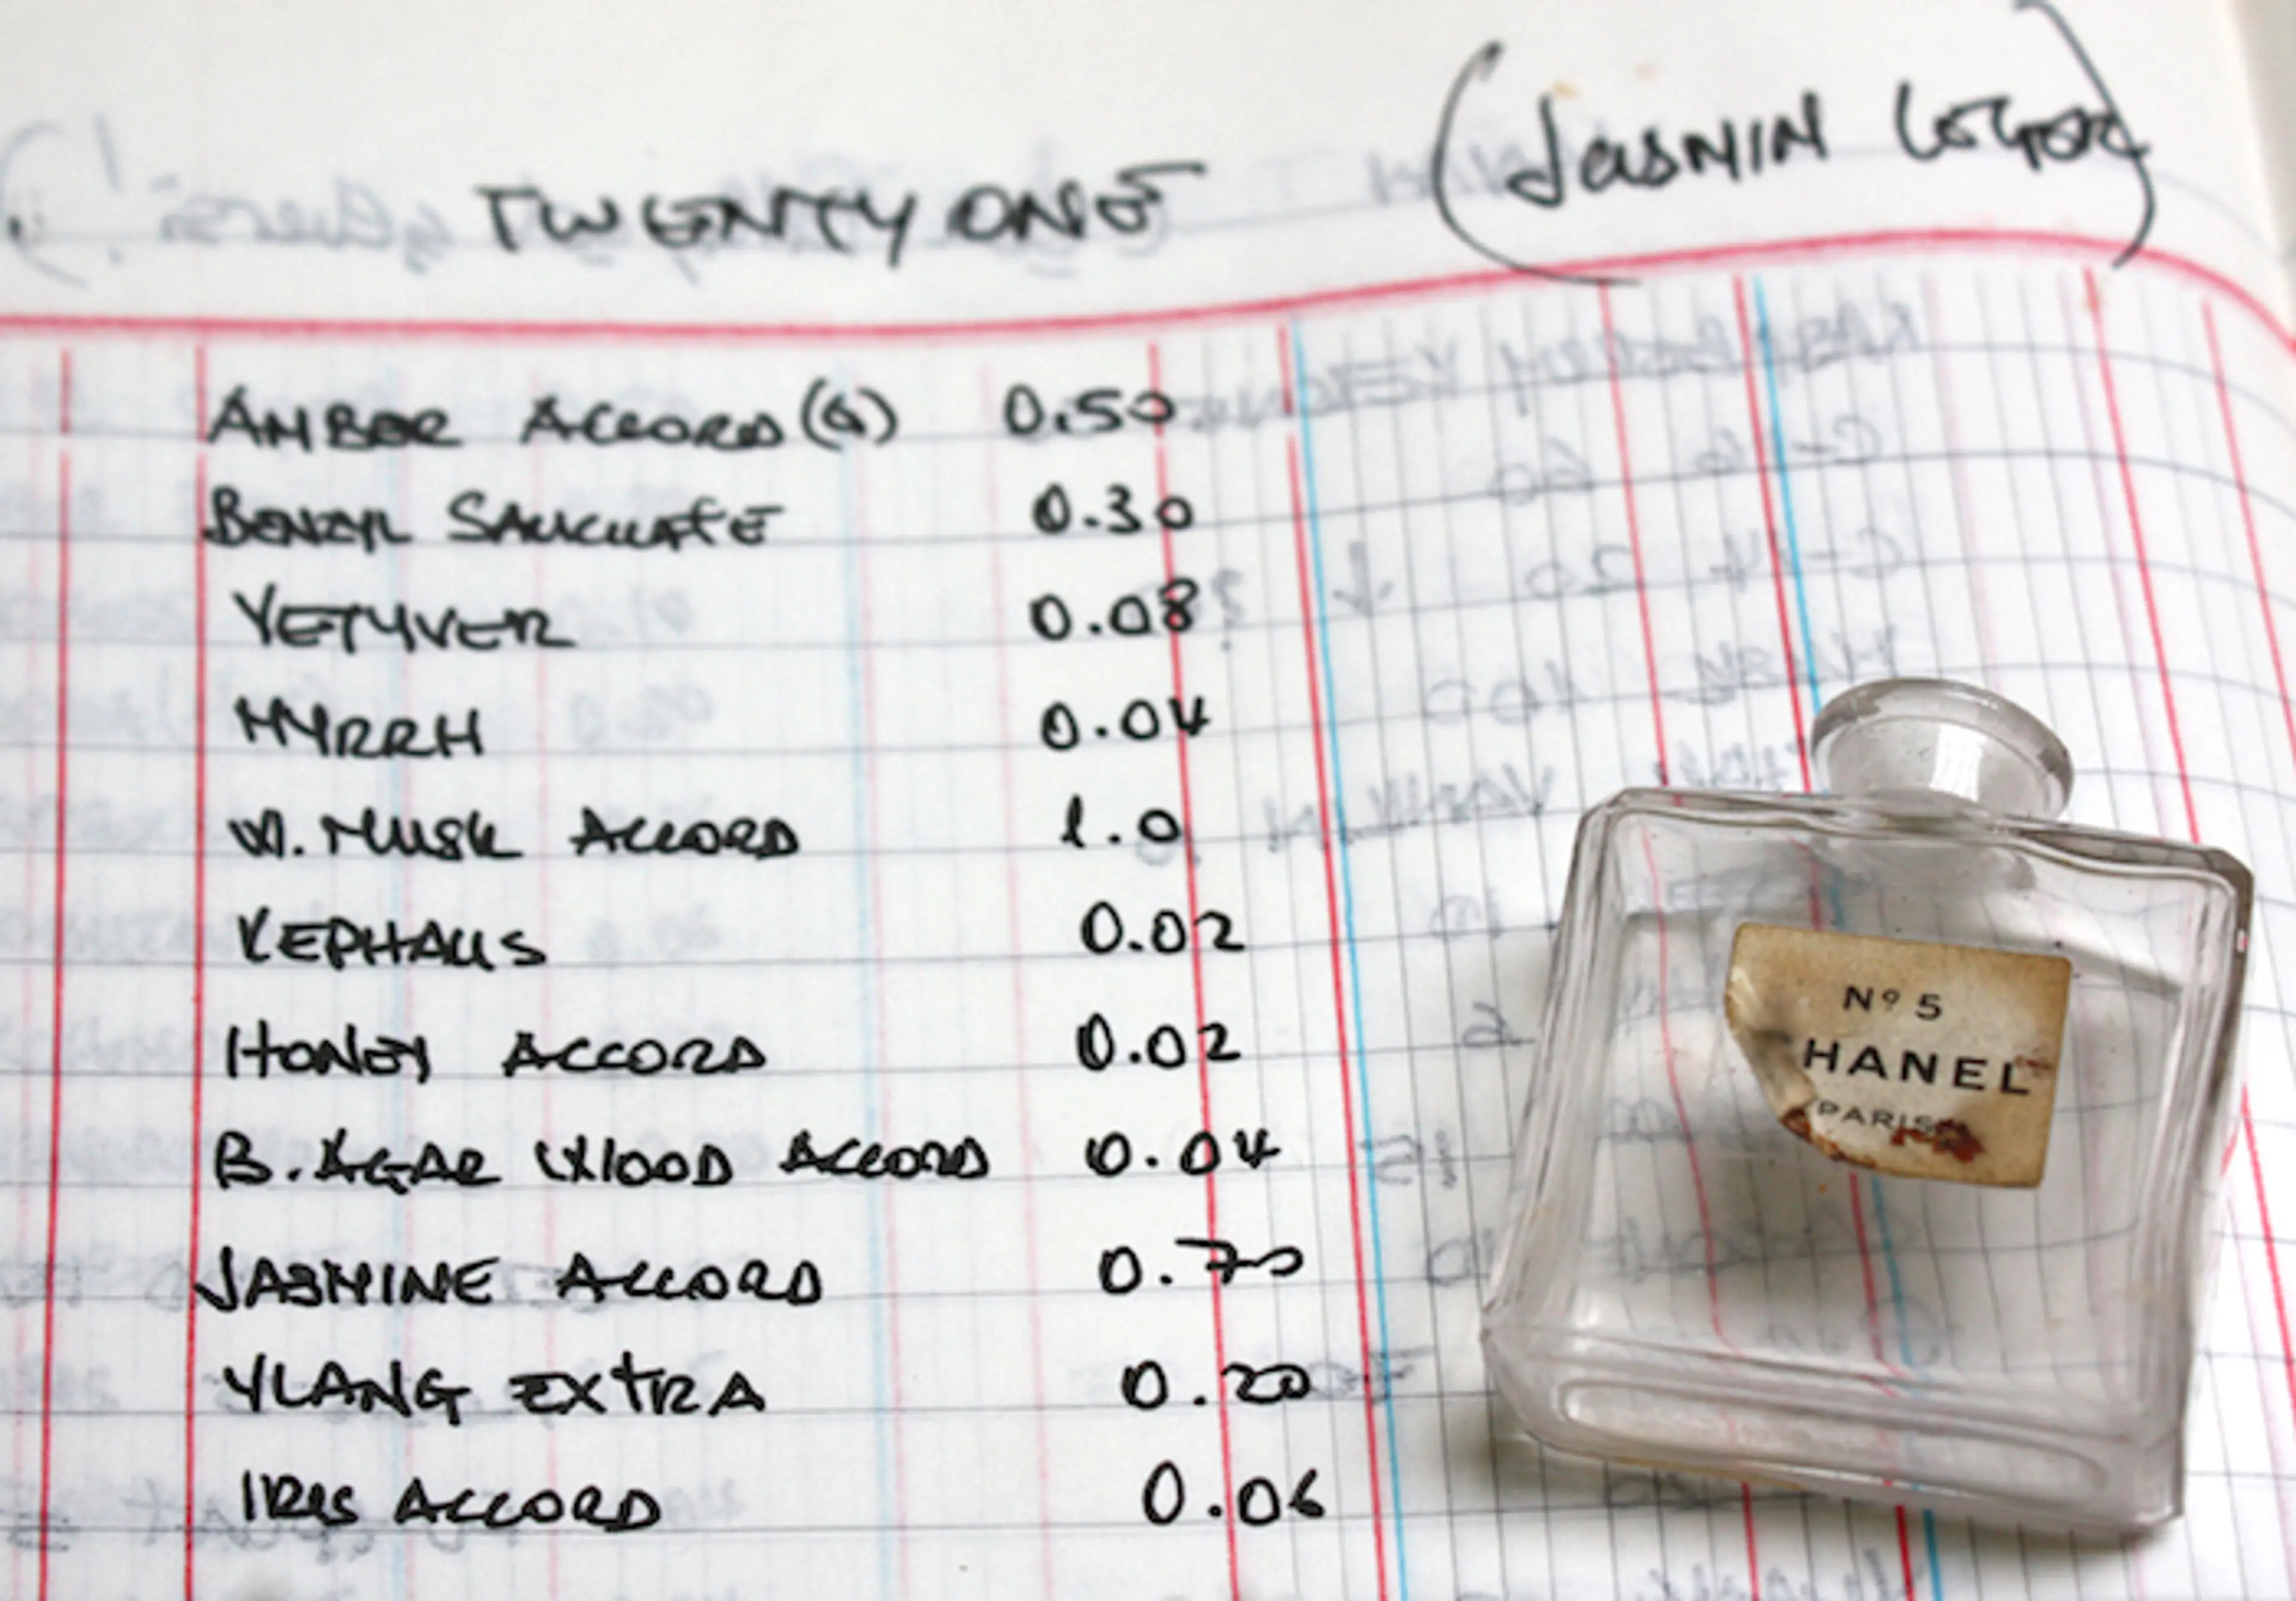 TWENTY ONE (JASMIN
AMBER ACCORD (G) 0.50
BENZYL SALICYLATE 0.30
VETYVER 0.08
MYRRH 0.04
W. MUSK ACCORD 1.0
KEPHALIS 0.02
HONEY ACCORD 0.02
B. AGAR WOOD ACCORD 0.04
JASMINE ACCORD 0.70
YLANG EXTRA 0.20
IRIS ACCORD 0.06
Nº 5
HANEL
PARIS